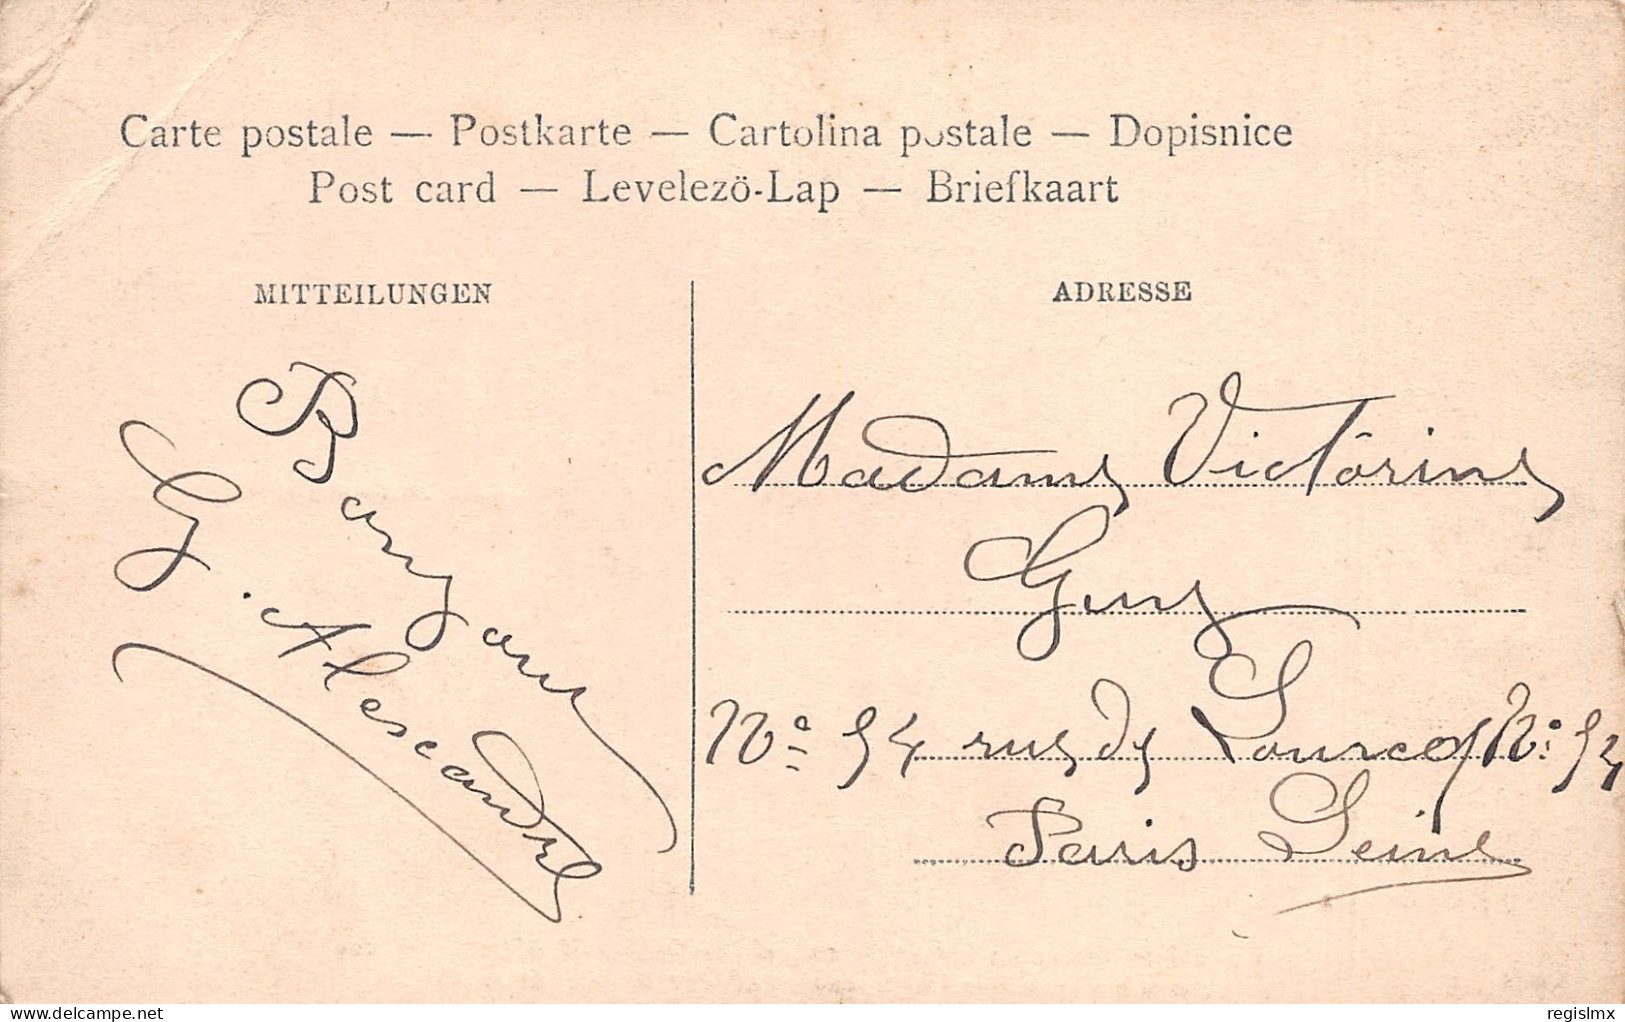 Carte postale — Postkarte — Cartolina postale — Dopisnice
Post card — Levelezö-Lap — Briefkaart
MITTEILUNGEN
ADRESSE
G. Alexandre
Madame Victorine
Guy
No 54 rue de Lourcq No 54
Paris Seine
www.delcampe.net
regislmx